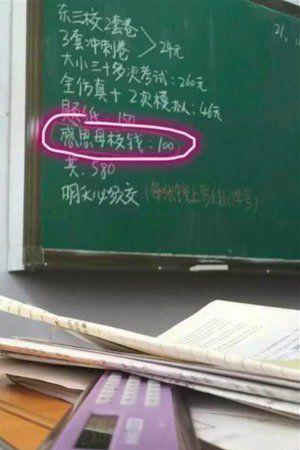 东三校2套卷
3套冲刺卷 > 24元
大小三十多次考试:260元
全仿真+2次模拟:46元
题纸:150
感恩母校钱:100
共:580
明天必须交(每张钱上写自己学号)
21,